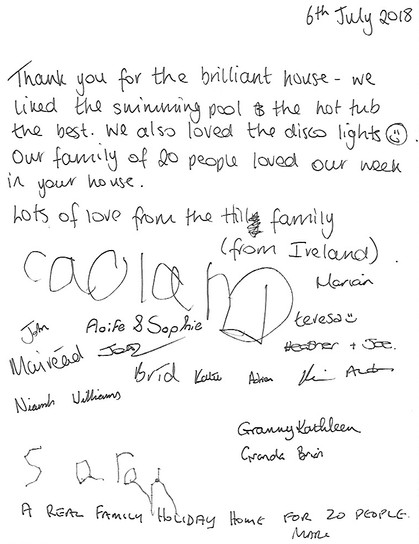 6th July 2018
Thank you for the brilliant house - we
liked the swimming pool & the hot tub
the best. We also loved the disco lights
Our family of 20 people loved our week
in your house.
Lots of love from the Hill family
(from Ireland).
Caolan
Marian
John Aoife & Sophie
teresa
Mairéad
Heather + Joe.
Bríd Katie
Niamh Williams
Granny Kathleen
Granda Brian
Sarah
A REAL FAMILY HOLIDAY HOME FOR 20 PEOPLE.